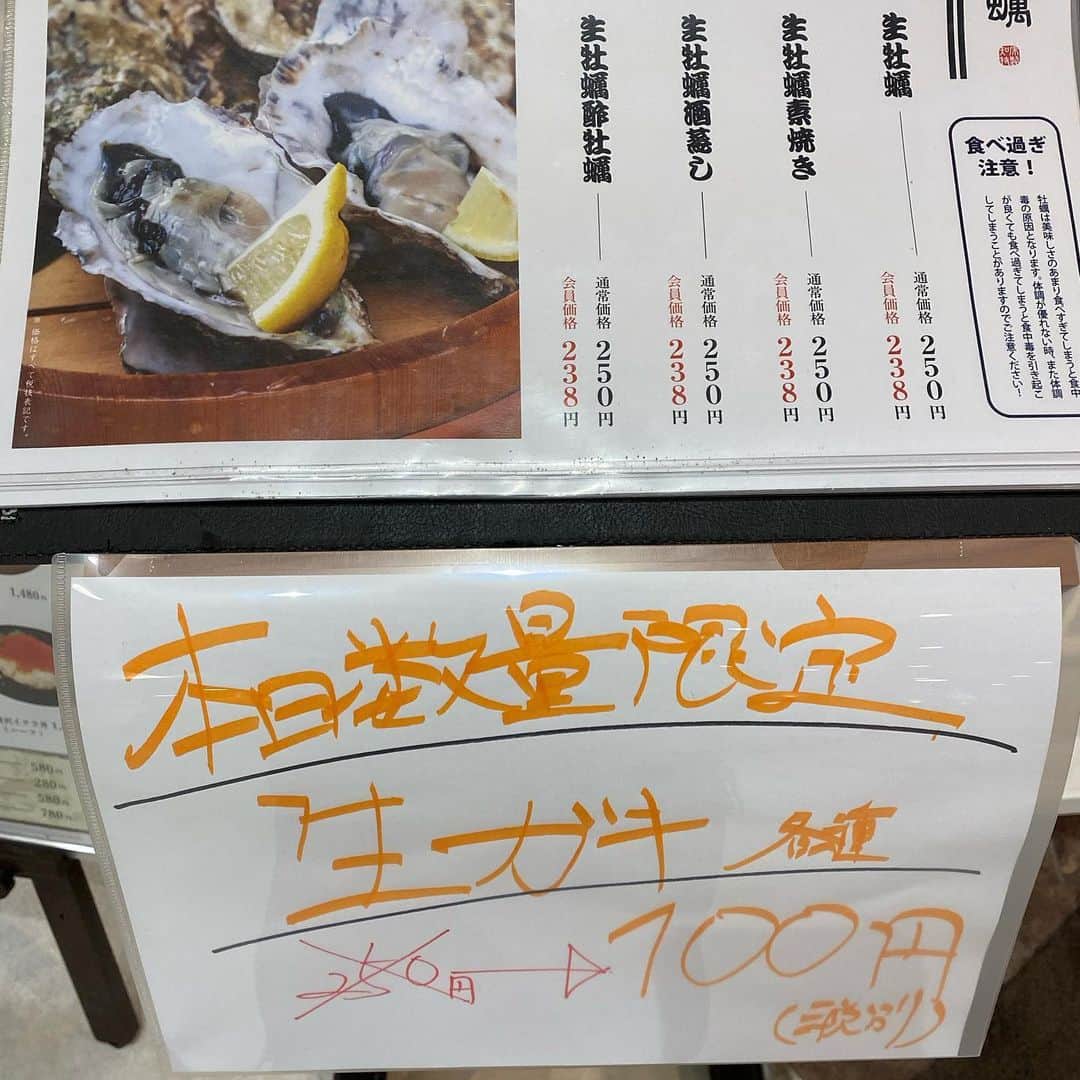 蠣
食べ過ぎ
注意！
牡蠣は美味しさのあまり食べすぎてしまうと食中
毒の原因となります。体調が優れない時、また体調
が良くても食べ過ぎてしまうと食中毒を引き起こ
してしまうことがありますのでご注意ください！
生牡蠣
通常価格 250円
会員価格 238円
生牡蠣素焼き
通常価格 250円
会員価格 238円
生牡蠣酒蒸し
通常価格 250円
会員価格 238円
生牡蠣酢牡蠣
通常価格 250円
会員価格 238円
※ 価格はすべて税抜表記です。
1,480円
580円
280円
580円
780円
本日数量限定
生ガキ 各種
250円 → 100円
(税別)